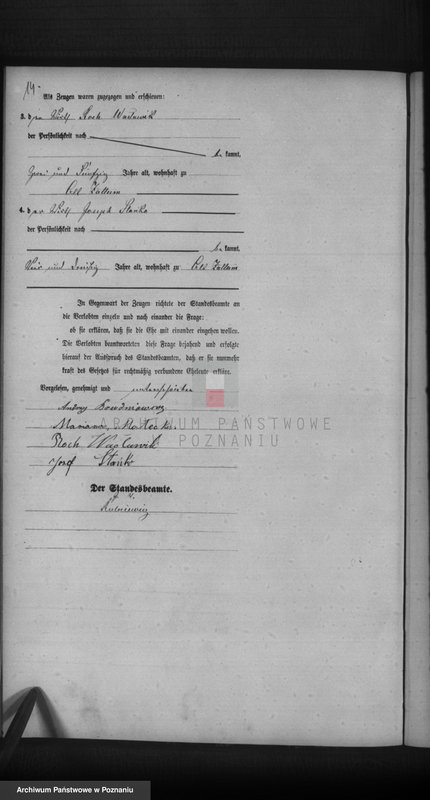 14
Als Zeugen waren zugezogen und erschienen:
3. der Wirth Roch Waclawik
der Persönlichkeit nach
be kannt,
zwei und fünfzig Jahre alt, wohnhaft zu
Alt
4. der Wirth Joseph Stanko
der Persönlichkeit nach
be kannt,
und dreißig Jahre alt, wohnhaft zu Alt
In Gegenwart der Zeugen richtete der Standesbeamte an
die Verlobten einzeln und nach einander die Frage:
ob sie erklären, daß sie die Ehe mit einander eingehen wollen.
Die Verlobten beantworteten diese Frage bejahend und erfolgte
hierauf der Ausspruch des Standesbeamten, daß er sie nunmehr
kraft des Gesetzes für rechtmäßig verbundene Eheleute erkläre.
Vorgelesen, genehmigt und unterschrieben
Andrzy
Marianna
Roch Waclawik
Josef Stanko
Der Standesbeamte.
ARCHIWUM PAŃSTWOWE
POZNANIU
Archiwum Państwowe w Poznaniu